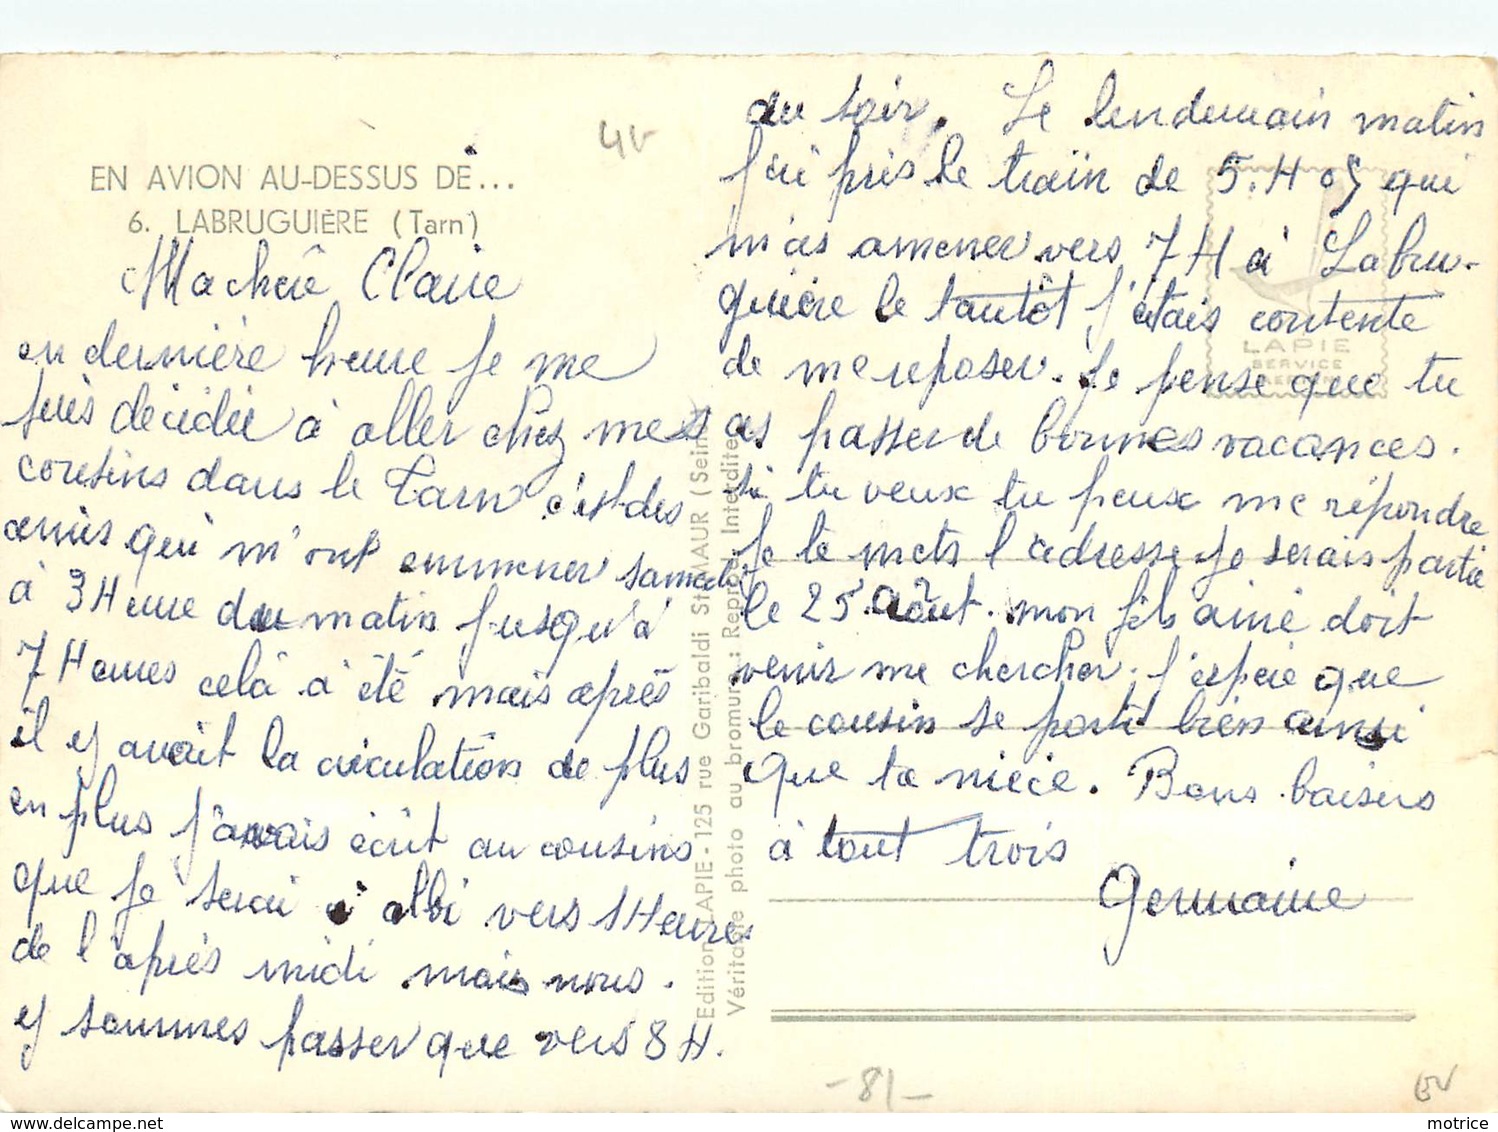 EN AVION AU-DESSUS DE...
6. LABRUGUIÈRE (Tarn)
Ma cherie Claire
en dernière heure Je me
suis décidée à aller chez mes
cousins dans le Tarn c'est des
amis qui m'ont emmener samedi
à 3 Heure du matin Jusqu'à
7 Heures celà à été mais après
il y avait la circulation de plus
en plus J'avais écrit au cousins
que Je serai à albi vers 1 Heures
de l'après midi mais nous
y sommes passer que vers 8 H.
du soir. Le lendemain matin
J'ai pris le train de 5.H 05 qui
m'as amener vers 7 H à Labru-
guière le tantôt J'étais contente
de me reposer. Je pense que tu
as passer de bonnes vacances.
si tu veux tu peux me répondre
Je te mets l'adresse Je serais partie
le 25 août. mon fils ainé doit
venir me chercher. J'espère que
le cousin se porte bien ainsi
que ta nièce. Bons baisers
à tout trois
Germaine
Edition LAPIE - 125 rue Garibaldi St-MAUR (Seine)
Véritable photo au bromure : Reprod. Interdite
LAPIE
SERVICE
4V
-8/-
EV
motrice
www.delcampe.net